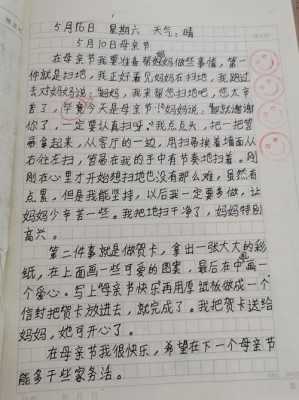 5月15日 星期六 天气:晴
5月10日母亲节
在母亲节我要准备帮妈妈做些事情,第一
件就是扫地,我正好看见妈妈在扫地,我跑过
去对妈妈说:"妈妈,我来帮您扫地吧,您太辛
苦了,毕竟今天是母亲节"妈妈说:"那就谢谢
你了,一定要认真扫呀"我点点头,把一把笤
帚拿起来,从客厅的一边,用扫帚挨着墙面从
右往左扫,笤帚在我的手中有节奏地扫着。刚
刚在心里才开始想扫地也没有那么难,虽然有
点累,但是我能坚持,以后我一定要多做,让
妈妈少辛苦一些。我把地扫干净了,妈妈特别
高兴。
第二件事就是做贺卡,拿出一张大大的彩
纸,在上面画一些可爱的图案,最后在中画一
个爱心。写上母亲节快乐再用厚纸做成一个
信封把贺卡放进去,就完成了。我把贺卡送给
妈妈,她可开心了。
在母亲节我很快乐,希望在下一个母亲节
能多干些家务活。